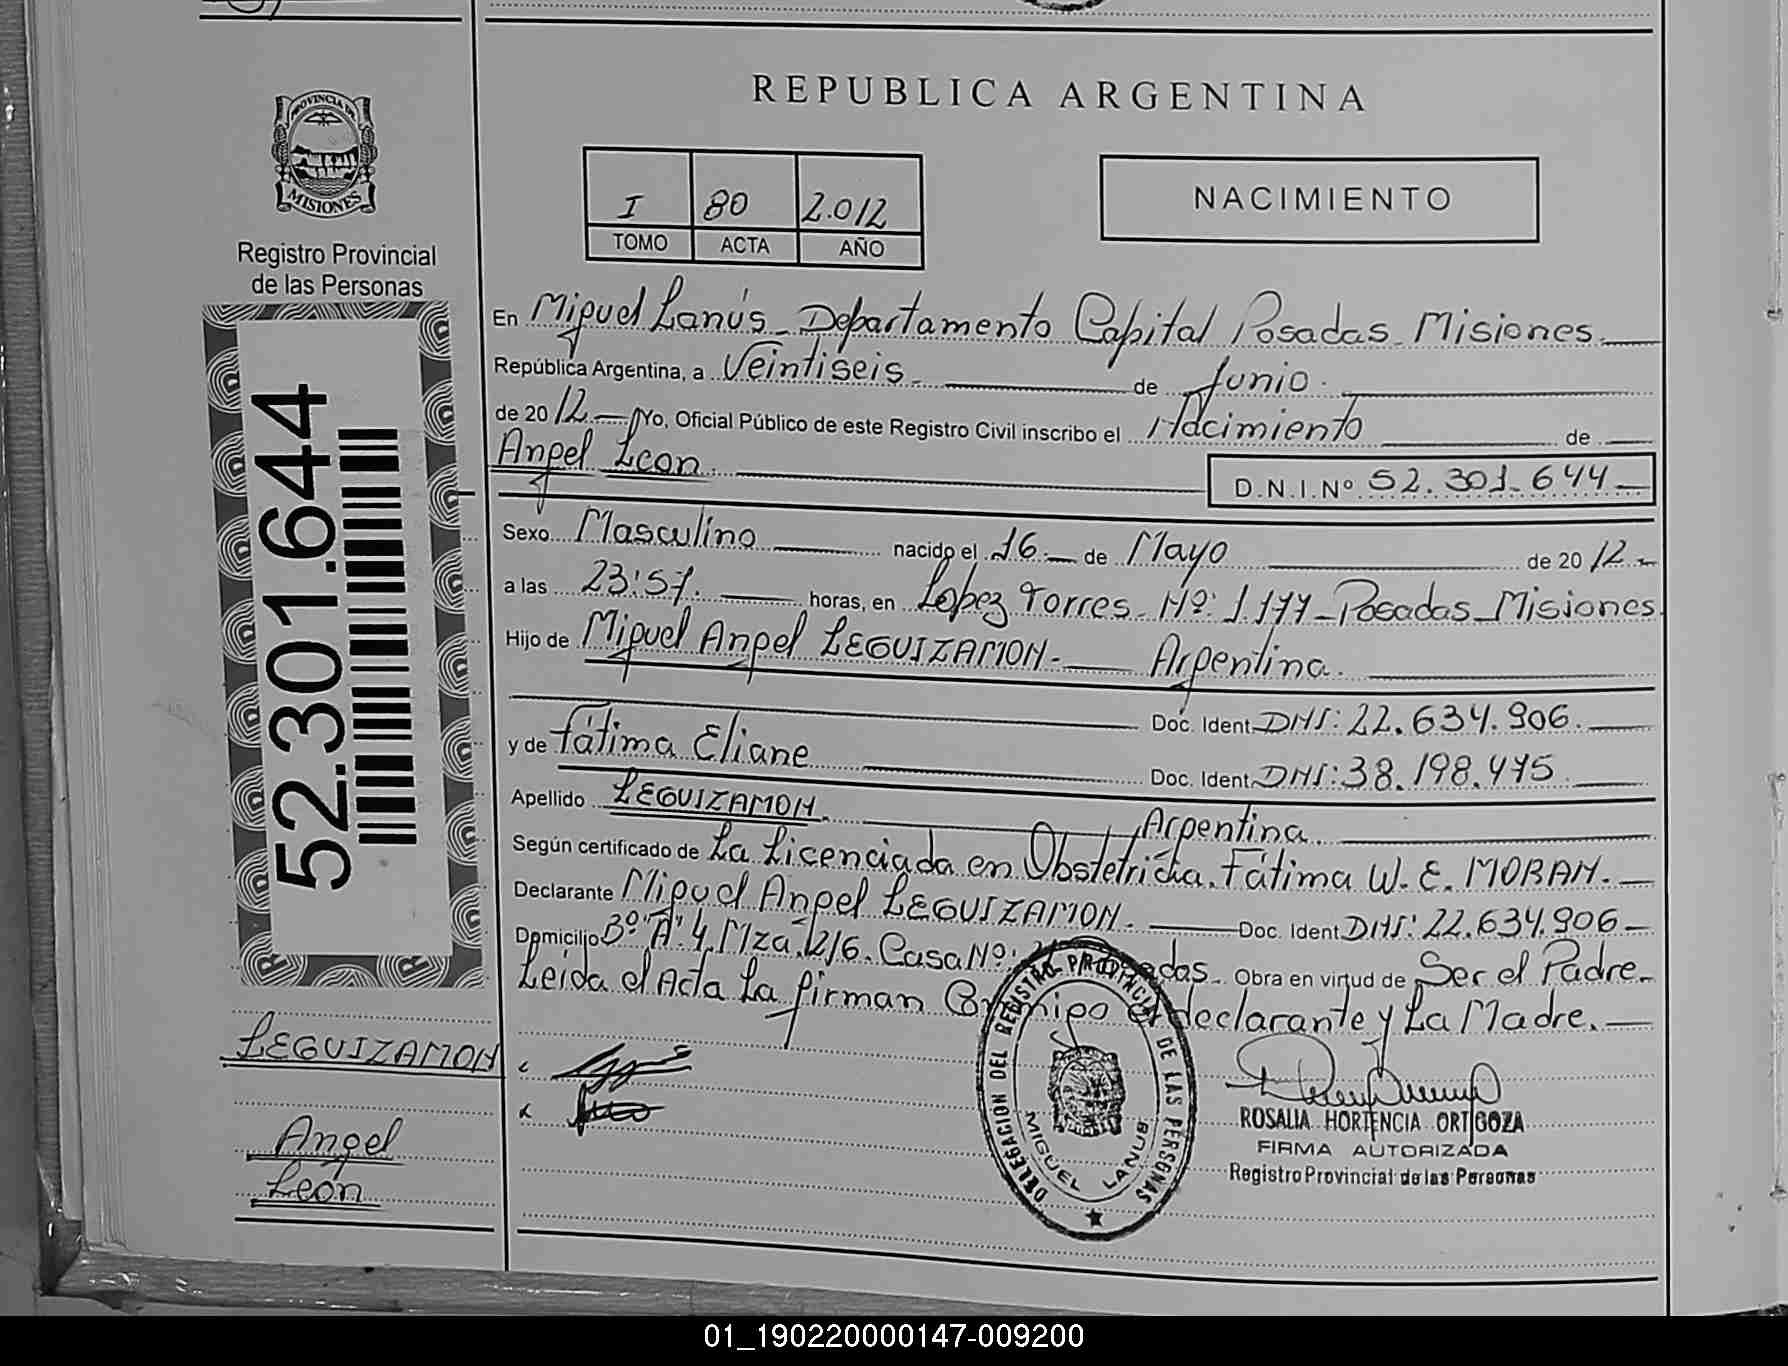 REPUBLICA ARGENTINA
PROVINCIA DE
MISIONES
Registro Provincial
de las Personas
I 80 2.012
TOMO ACTA AÑO
NACIMIENTO
52.301.644
En Miguel Lanús - Departamento Capital Posadas - Misiones.
República Argentina, a Veintiseis. de Junio.
de 2012 Yo, Oficial Público de este Registro Civil inscribo el Nacimiento de
Angel Leon.
D.N.I.Nº 52.301.644
Sexo Masculino nacido el 16 de Mayo de 2012
a las 23:57. horas, en Lopez Torres - Nº: 1.177 - Posadas - Misiones.
Hijo de Miguel Angel LEGUIZAMON - Argentina.
Doc. Ident DNI: 22.634.906.
y de Fátima Eliane
Doc. Ident DNI: 38.198.475
Apellido LEGUIZAMON. Argentina.
Según certificado de La Licenciada en Obstetricia. Fátima W. E. MORAN.
Declarante Miguel Angel LEGUIZAMON. Doc. Ident DNI: 22.634.906
Domicilio Bº "A" 4. Mza. 216. Casa Nº: Obra en virtud de Ser el Padre.
Leida el Acta La firman Conmigo el declarante y La Madre.
LEGUIZAMON
Angel
León
DELEGACION DEL REGISTRO PROVINCIAL DE LAS PERSONAS
MIGUEL LANUS
ROSALIA HORTENCIA ORTIGOZA
FIRMA AUTORIZADA
Registro Provincial de las Personas
01_190220000147-009200